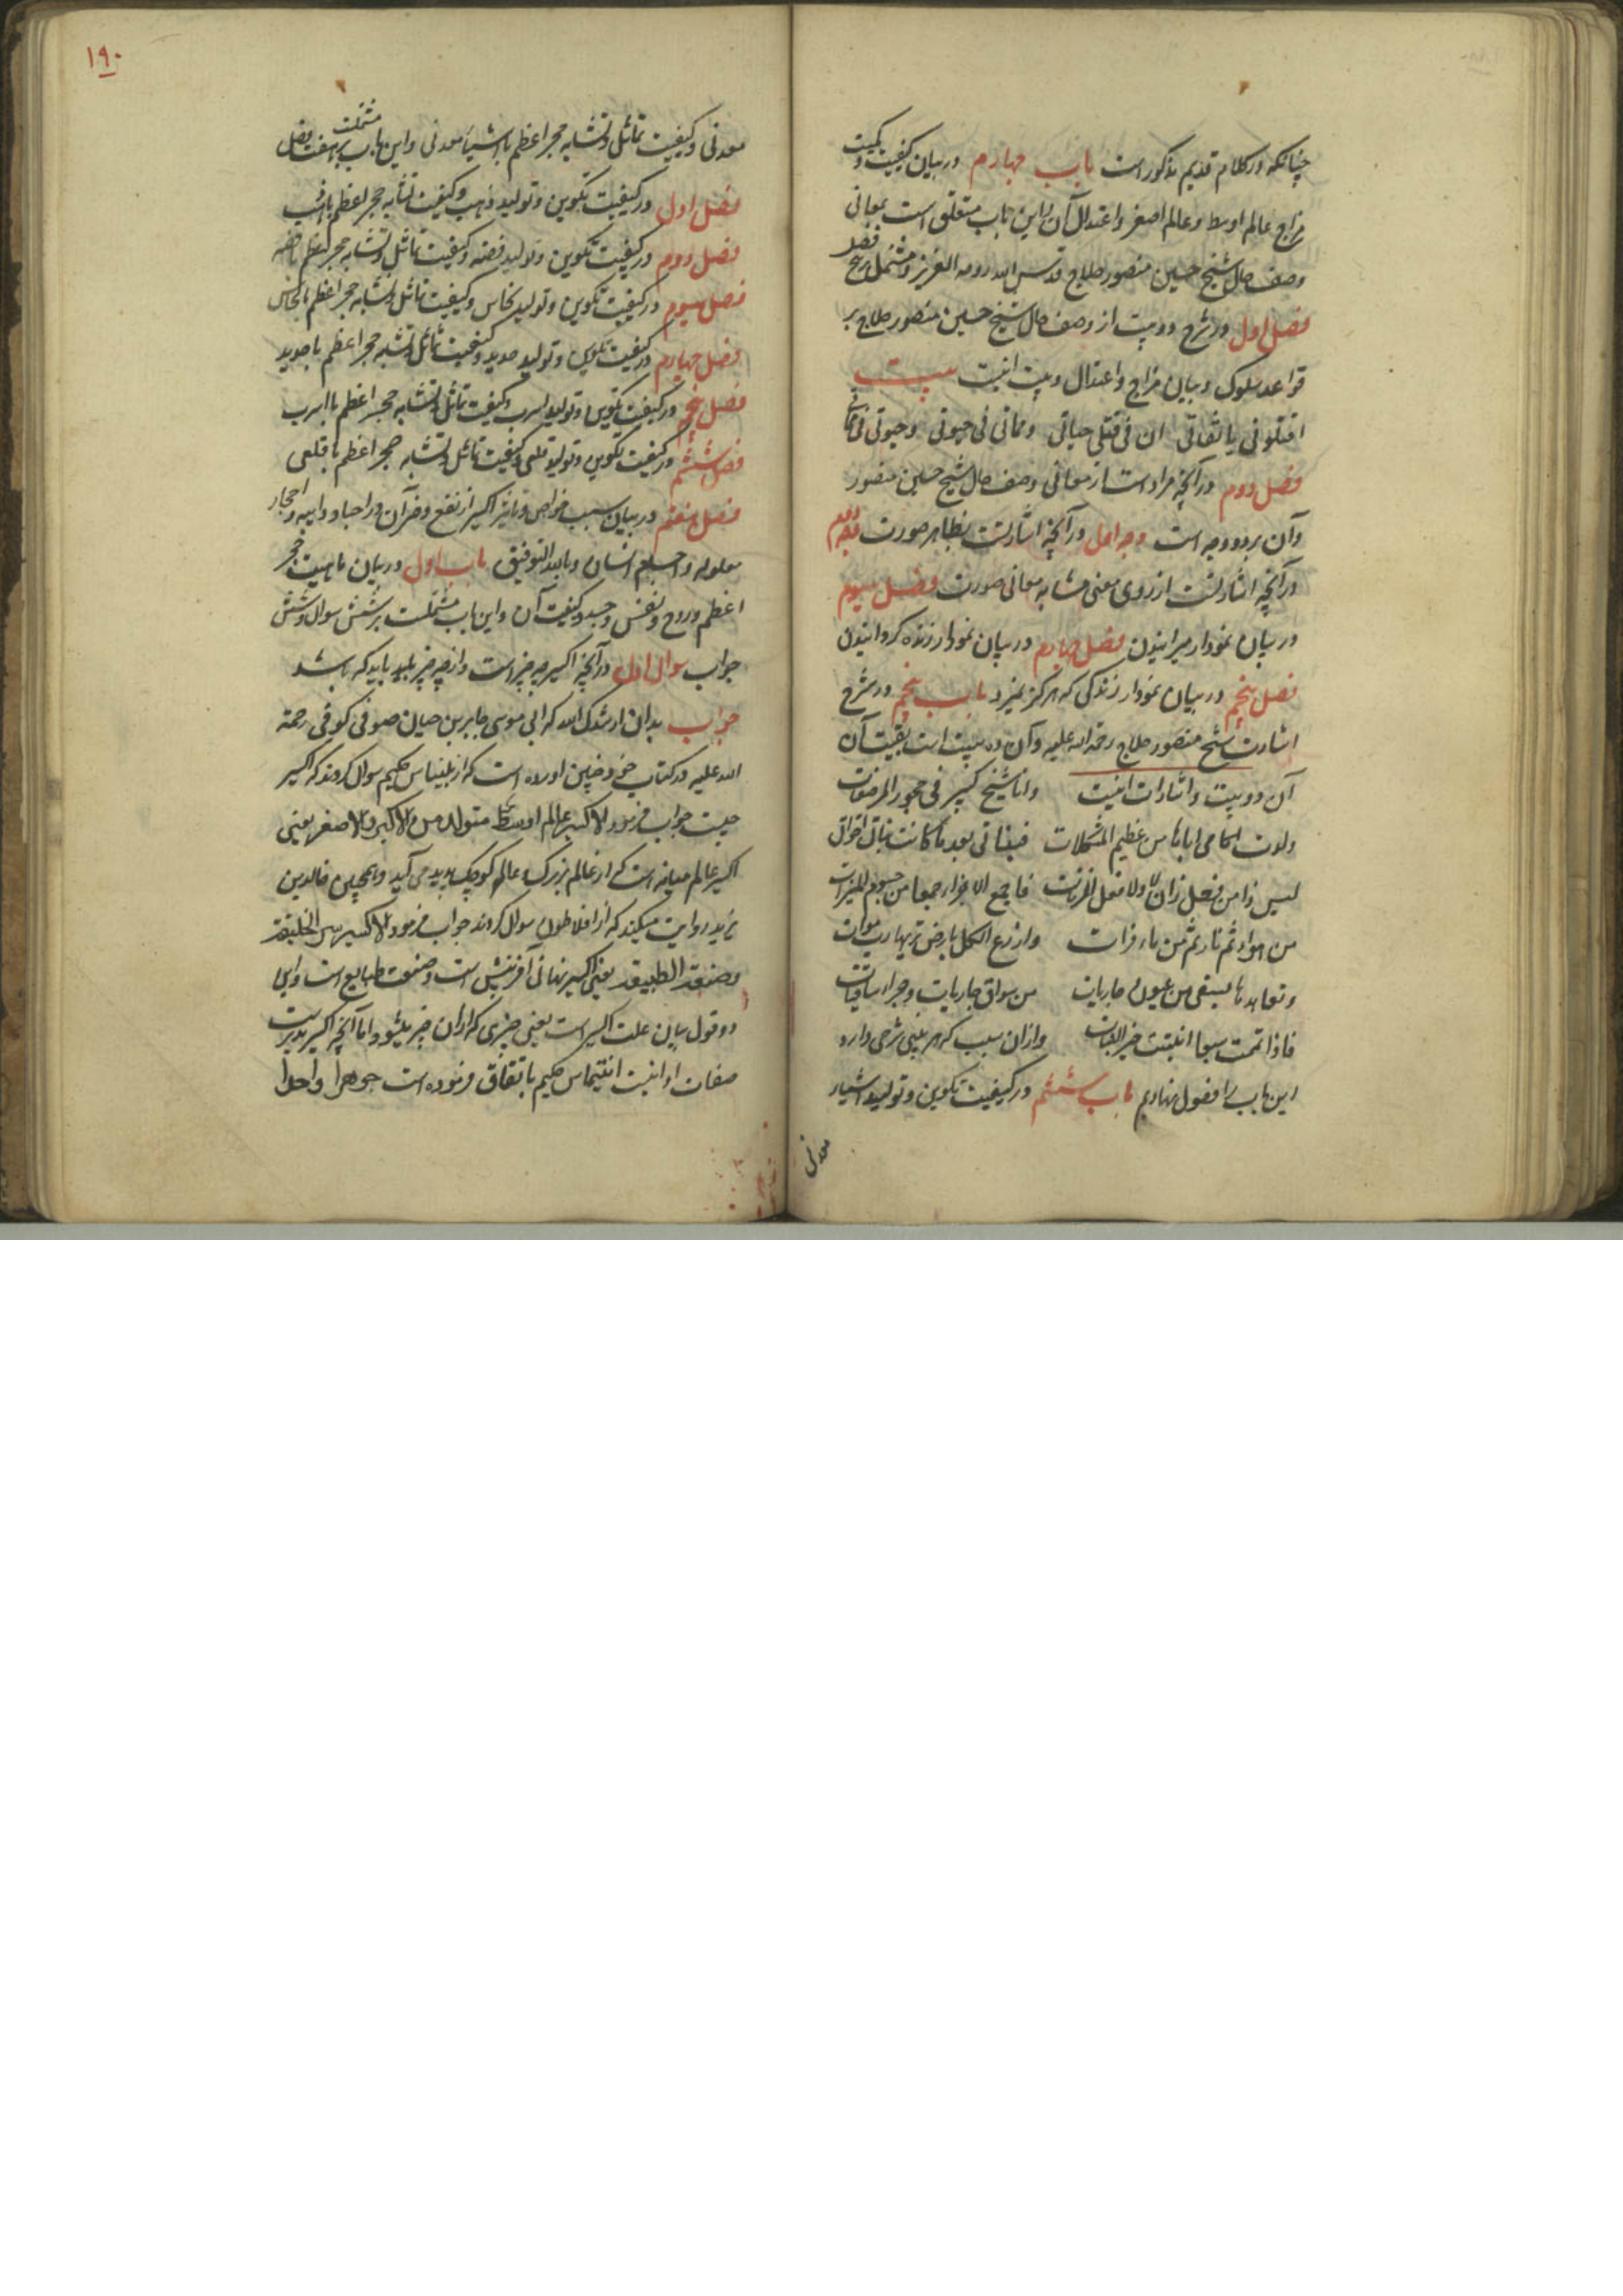 چنانکه در کلام قدیم مذکور است باب چهارم در بیان کیفیت و کمیت
مزاج عالم اوسط و عالم اصغر و اعتدال آن و این باب متعلق است بمعانی
وصف حال شیخ حسین منصور حلاج قدس الله روحه العزیز و مشتمل بر پنج فصل
فصل اول در شرح دو بیت از وصف حال شیخ حسین منصور حلاج بر
قواعد سلوک و بیان مزاج و اعتدال و بیت اینست بیت
اقتلونی یا ثقاتی ان فی قتلی حیاتی ومماتی فی حیوتی وحیوتی فی مماتی
فصل دوم در آنچه مراد است از معانی وصف حال شیخ حسین منصور
و آن بر دو وجه است وجه اول در آنچه اشارتست بظاهر صورت وجه دوم
در آنچه اشارتست از روی معنی مشابه معانی صورت فصل سیوم
در بیان نمودار میرانیدن فصل چهارم در بیان نمودار زنده کردانیدن
فصل پنجم در بیان نمودار زندکی که هرکز نمیرد باب پنجم در شرح
اشارت شیخ منصور حلاج رحمة الله علیه و آن ده بیت است بقیت آن
آن دو بیت و اشارات اینست وانا شیخ کبیر فی حجور المرضعات
ولدت امی اباها من عظیم المشکلات فبناتی بعد ما کانت بناتی اخواتی
لیس ذا من فعل زمان لا ولا فعل الزنات فاجمع الاجزاء جمعا من جسوم النیرات
من هواء ثم نار ثم من ماء فرات وازرع الکل بارض تربها ترب موات
وتعاهدها بسقی من عیون جاریات من سواق جاریات وجوار ساقیات
فاذا تممت سبعا انبتت خیر النبات و از ان سبب که هر بیتی شرحی دارد
این باب را فصول نهادیم باب ششم در کیفیت تکوین و تولید اشیاء
معدنی
۱۹۰
معدنی و کیفیت تماثل و تشابه حجر اعظم با اشیاء معدنی و این باب مشتملست بر هفت فصل
فصل اول در کیفیت تکوین و تولید ذهب و کیفیت تشابه حجر اعظم با ذهب
فصل دوم در کیفیت تکوین و تولید فضه و کیفیت تماثل و تشابه حجر اعظم با فضه
فصل سیوم در کیفیت تکوین و تولید نحاس و کیفیت تماثل و تشابه حجر اعظم با نحاس
فصل چهارم در کیفیت تکوین و تولید حدید و کیفیت تماثل و تشابه حجر اعظم با حدید
فصل پنجم در کیفیت تکوین و تولید اسرب و کیفیت تماثل و تشابه حجر اعظم با اسرب
فصل ششم در کیفیت تکوین و تولید قلعی و کیفیت تماثل و تشابه حجر اعظم با قلعی
فصل هفتم در بیان سبب خواص و تاثیر اکسیر از نفع و ضر آن در اجساد ذایبه و احجار
معلوله و اجسام انسان وبالله التوفیق باب اول در بیان ماهیت حجر
اعظم و روح و نفس و جسد و کیفیت آن و این باب مشتملست بر شش سوال و شش
جواب سوال اول در آنچه اکسیر چه چیز است و از چه چیز باید که باشد
جواب بدان ارشدک الله که ابی موسی جابر بن حیان صوفی کوفی رحمة
الله علیه در کتاب خود چنین اورده است که از بلیناس حکیم سوال کردند که اکسیر
چیست جواب فرمود الاکسیر عالم اوسط متولد من الاکبر والاصغر یعنی
اکسیر عالم میانه است که از عالم بزرک و عالم کوچک پدید می آید و همچنین خالد بن
یزید روایت میکند که از افلاطون سوال کردند جواب فرمود الاکسیر سر الخلیقة
وصنعة الطبیعة یعنی اکسیر نهانی آفرینش است و صنعت طبایع است و این
دو قول بیان علت اکسیر است یعنی چیزی که از ان چیز میشود و اما آنچه اکسیر
صفات او اینست حکیم باتفاق فرموده است جوهرا واحدا